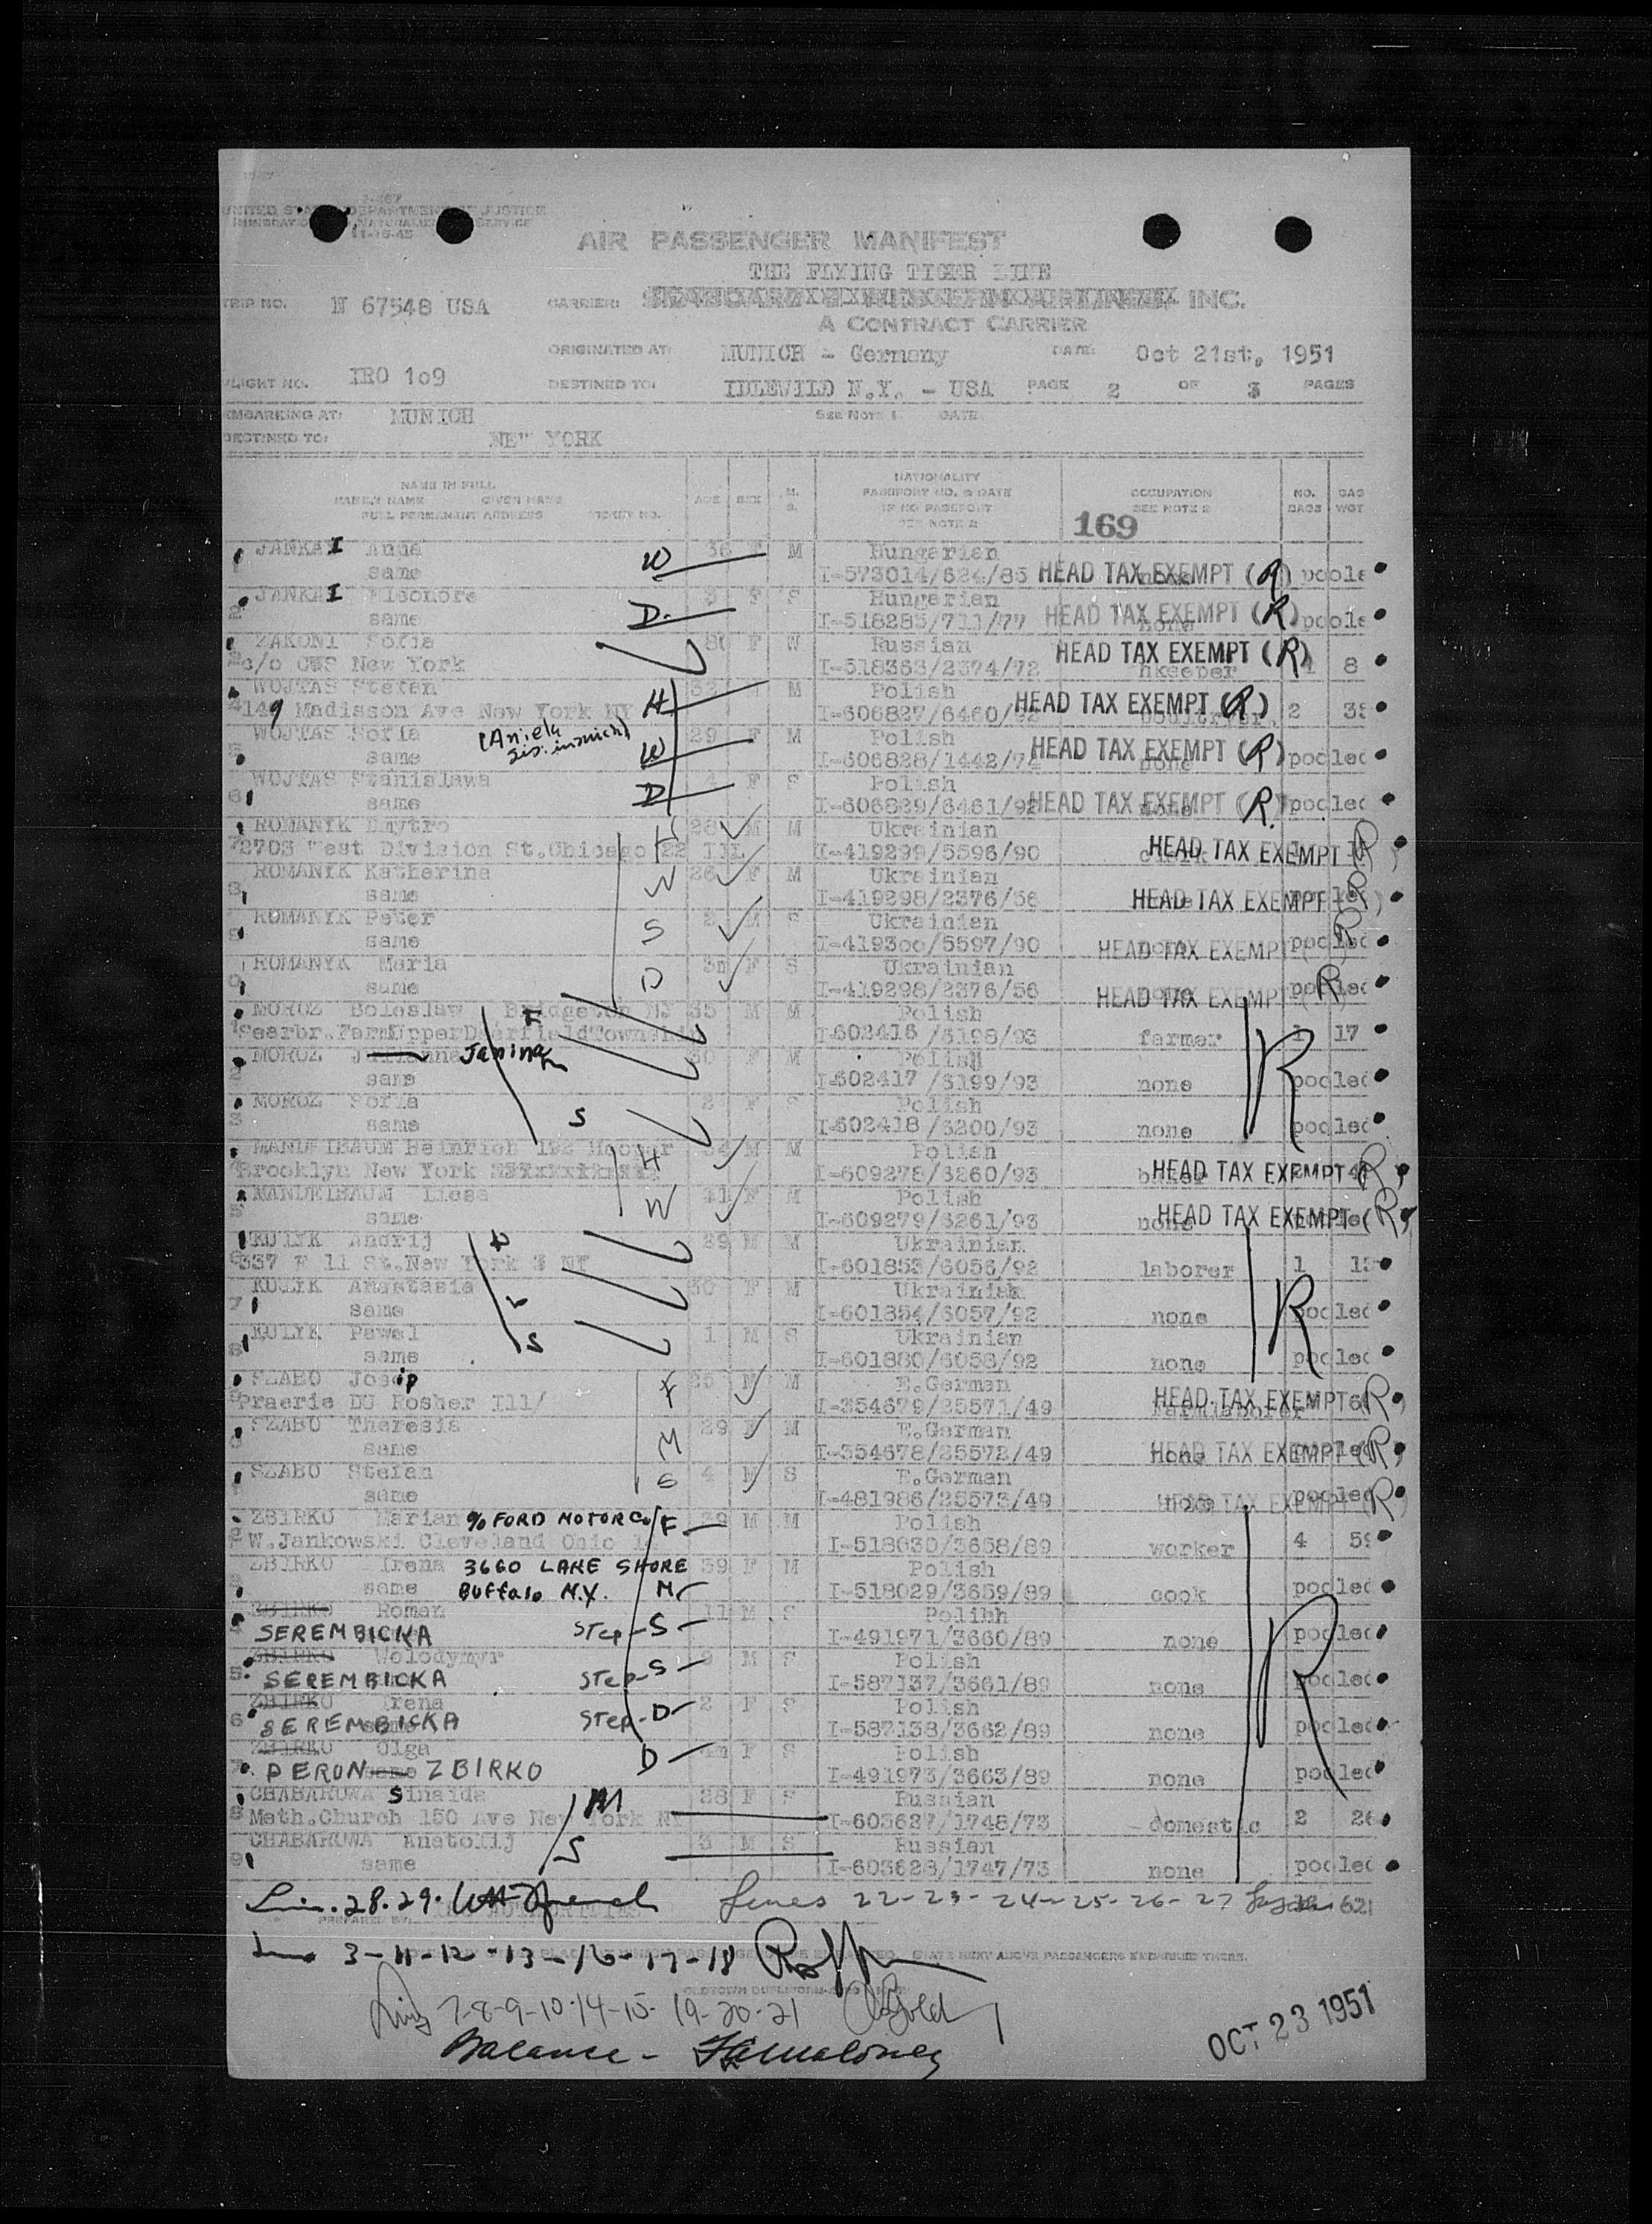 I-467
UNITED STATES DEPARTMENT OF JUSTICE
IMMIGRATION AND NATURALIZATION SERVICE
11-15-45
AIR PASSENGER MANIFEST
THE FLYING TIGER LINE
TRIP NO. N 67548 USA CARRIER: INC.
A CONTRACT CARRIER
ORIGINATED AT: MUNICH - Germany DATE: Oct 21st, 1951
FLIGHT NO. IRO 1o9 DESTINED TO: IDLEWILD N.Y. - USA PAGE 2 OF 3 PAGES
EMBARKING AT: MUNICH SEE NOTE 1 DATE
DESTINED TO: NEW YORK
NAME IN FULL
FAMILY NAME GIVEN NAME
FULL PERMANENT ADDRESS TICKET NO.
AGE SEX M. S.
NATIONALITY
PASSPORT NO. & DATE
IF NO PASSPORT
SEE NOTE 2
OCCUPATION
SEE NOTE 2
NO. BAGS BAG WGT
169
JANKAI Anna W 36 F M Hungarian
same I-573014/624/85 none HEAD TAX EXEMPT (R) poole
JANKAI Eleonore D. 3 F S Hungarian
2 same I-518285/711/77 none HEAD TAX EXEMPT (R) poole
ZAKONI Sofia 80 F W Russian
3 c/o CWS New York I-518363/2374/72 hkeeper HEAD TAX EXEMPT (R) 1 8
WOJTAS Stefan H M Polish
4 149 Madisson Ave New York NY I-606827/6460/92 HEAD TAX EXEMPT (R) 2
WOJTAS Sofia (Aniela W 29 F M Polish
5 same I-606828/1442/74 none HEAD TAX EXEMPT (R) pooled
WOJTAS Stanislawa D 4 F S Polish
6 same I-606829/6461/92 none HEAD TAX EXEMPT (R) pooled
ROMANYK Dmytro H 28 M M Ukrainian
7 2703 West Division St.Chicago 22 Ill I-419299/5596/90 HEAD TAX EXEMPT (R)
ROMANYK Katherina W 26 F M Ukrainian
8 same I-419298/2376/56 HEAD TAX EXEMPT (R)
ROMANYK Peter S 2 M S Ukrainian
9 same I-4193oo/5597/90 none HEAD TAX EXEMPT (R) pooled
ROMANYK Maria D 3m F S Ukrainian
0 same I-419298/2376/56 none HEAD TAX EXEMPT (R) pooled
MOROZ Boleslaw Bridgeton NJ F 35 M M Polish
1 Searbr.FarmUpperDeerfieldTownship I-602416/3198/93 farmer 1 17
MOROZ Janina 30 F M Polish
2 same I-602417/3199/93 none pooled
MOROZ Sofia S 2 F S Polish
3 same I-602418/3200/93 none pooled R
MANDELBAUM Heinrich 192 Hooper H 34 M M Polish
4 Brooklyn New York I-609278/3260/93 HEAD TAX EXEMPT (R)
MANDELBAUM Liesa W 41 F M Polish
5 same I-609279/3261/93 none HEAD TAX EXEMPT (R)
KULYK Andrij 39 M M Ukrainian
6 337 E 11 St.New York 3 NY I-601853/6056/92 laborer 1
KULYK Anastasia 30 F M Ukrainian
7 same I-601854/6057/92 none pooled R
KULYK Pawel S 1 M S Ukrainian
8 same I-601880/6058/92 none pooled
SZABO Josip F 25 M M E.German
9 Praerie DU Rosher Ill/ I-354679/25571/49 farmlaborer HEAD TAX EXEMPT (R)
SZABO Theresia M 29 F M E.German
0 same I-354678/25572/49 none HEAD TAX EXEMPT (R)
SZABO Stefan S 4 M S E.German
1 same I-481986/25573/49 none HEAD TAX EXEMPT (R) pooled
ZBIRKO Marian % FORD MOTOR Co F 39 M M Polish
2 W.Jankowski Cleveland Ohio I-518030/3658/89 worker 4
ZBIRKO Irena 3660 LAKE SHORE 39 F M Polish
3 same Buffalo N.Y. M I-518029/3659/89 cook pooled
ZBIRKO Roman 11 M S Polihh
4 SEREMBICKA STEP-S I-491971/3660/89 none pooled
ZBIRKO Wolodymyr 9 M S Polish
5 SEREMBICKA STEP-S I-587137/3661/89 none pooled R
ZBIRKO Irena 2 F S Polish
6 SEREMBICKA STEP-D I-587138/3662/89 none pooled
ZBIRKO Olga D F S Polish
7 PERON ZBIRKO I-491973/3663/89 none pooled
CHABAROWA Sinaida M 28 F S Russian
8 Meth.Church 150 Ave New York NY I-603627/1748/73 domestic 2
CHABAROWA Anatolij S 3 M S Russian
9 same I-603628/1747/73 none pooled
Lin. 28.29. Lines 22-23-24-25-26-27 621
PREPARED BY:
3-11-12-13-16-17-18
STATE NEXT ABOVE PASSENGERS EMBARKED THERE.
7-8-9-10-14-15-19-20-21 Gold
Balance - Maloney
OCT 23 1951